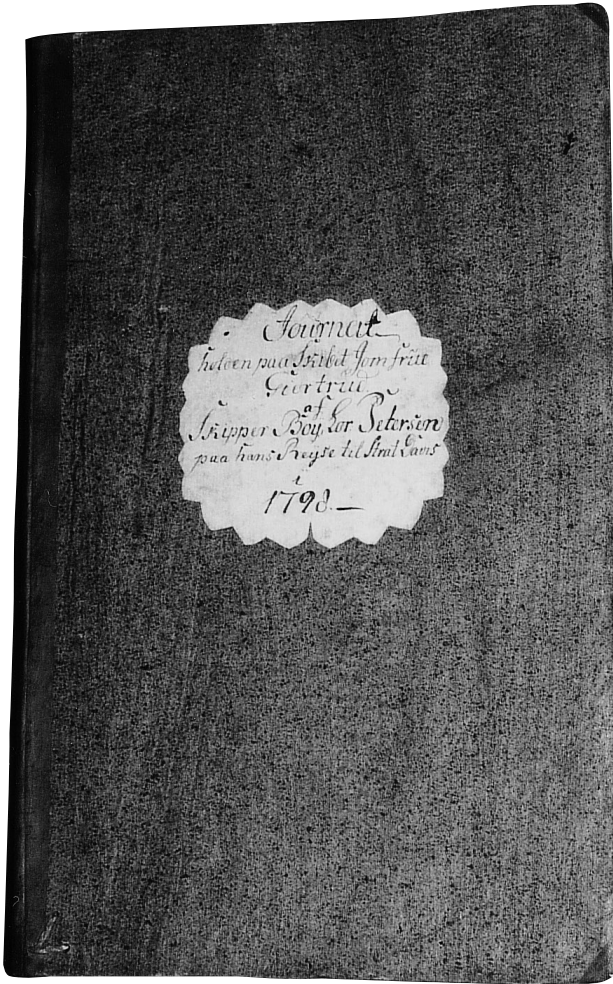 Journal
holden paa Skibet Jomfrue
Giertrud
af
Skipper Boy Lor Petersen
paa hans Reyse til Strat Davis
i
1798.